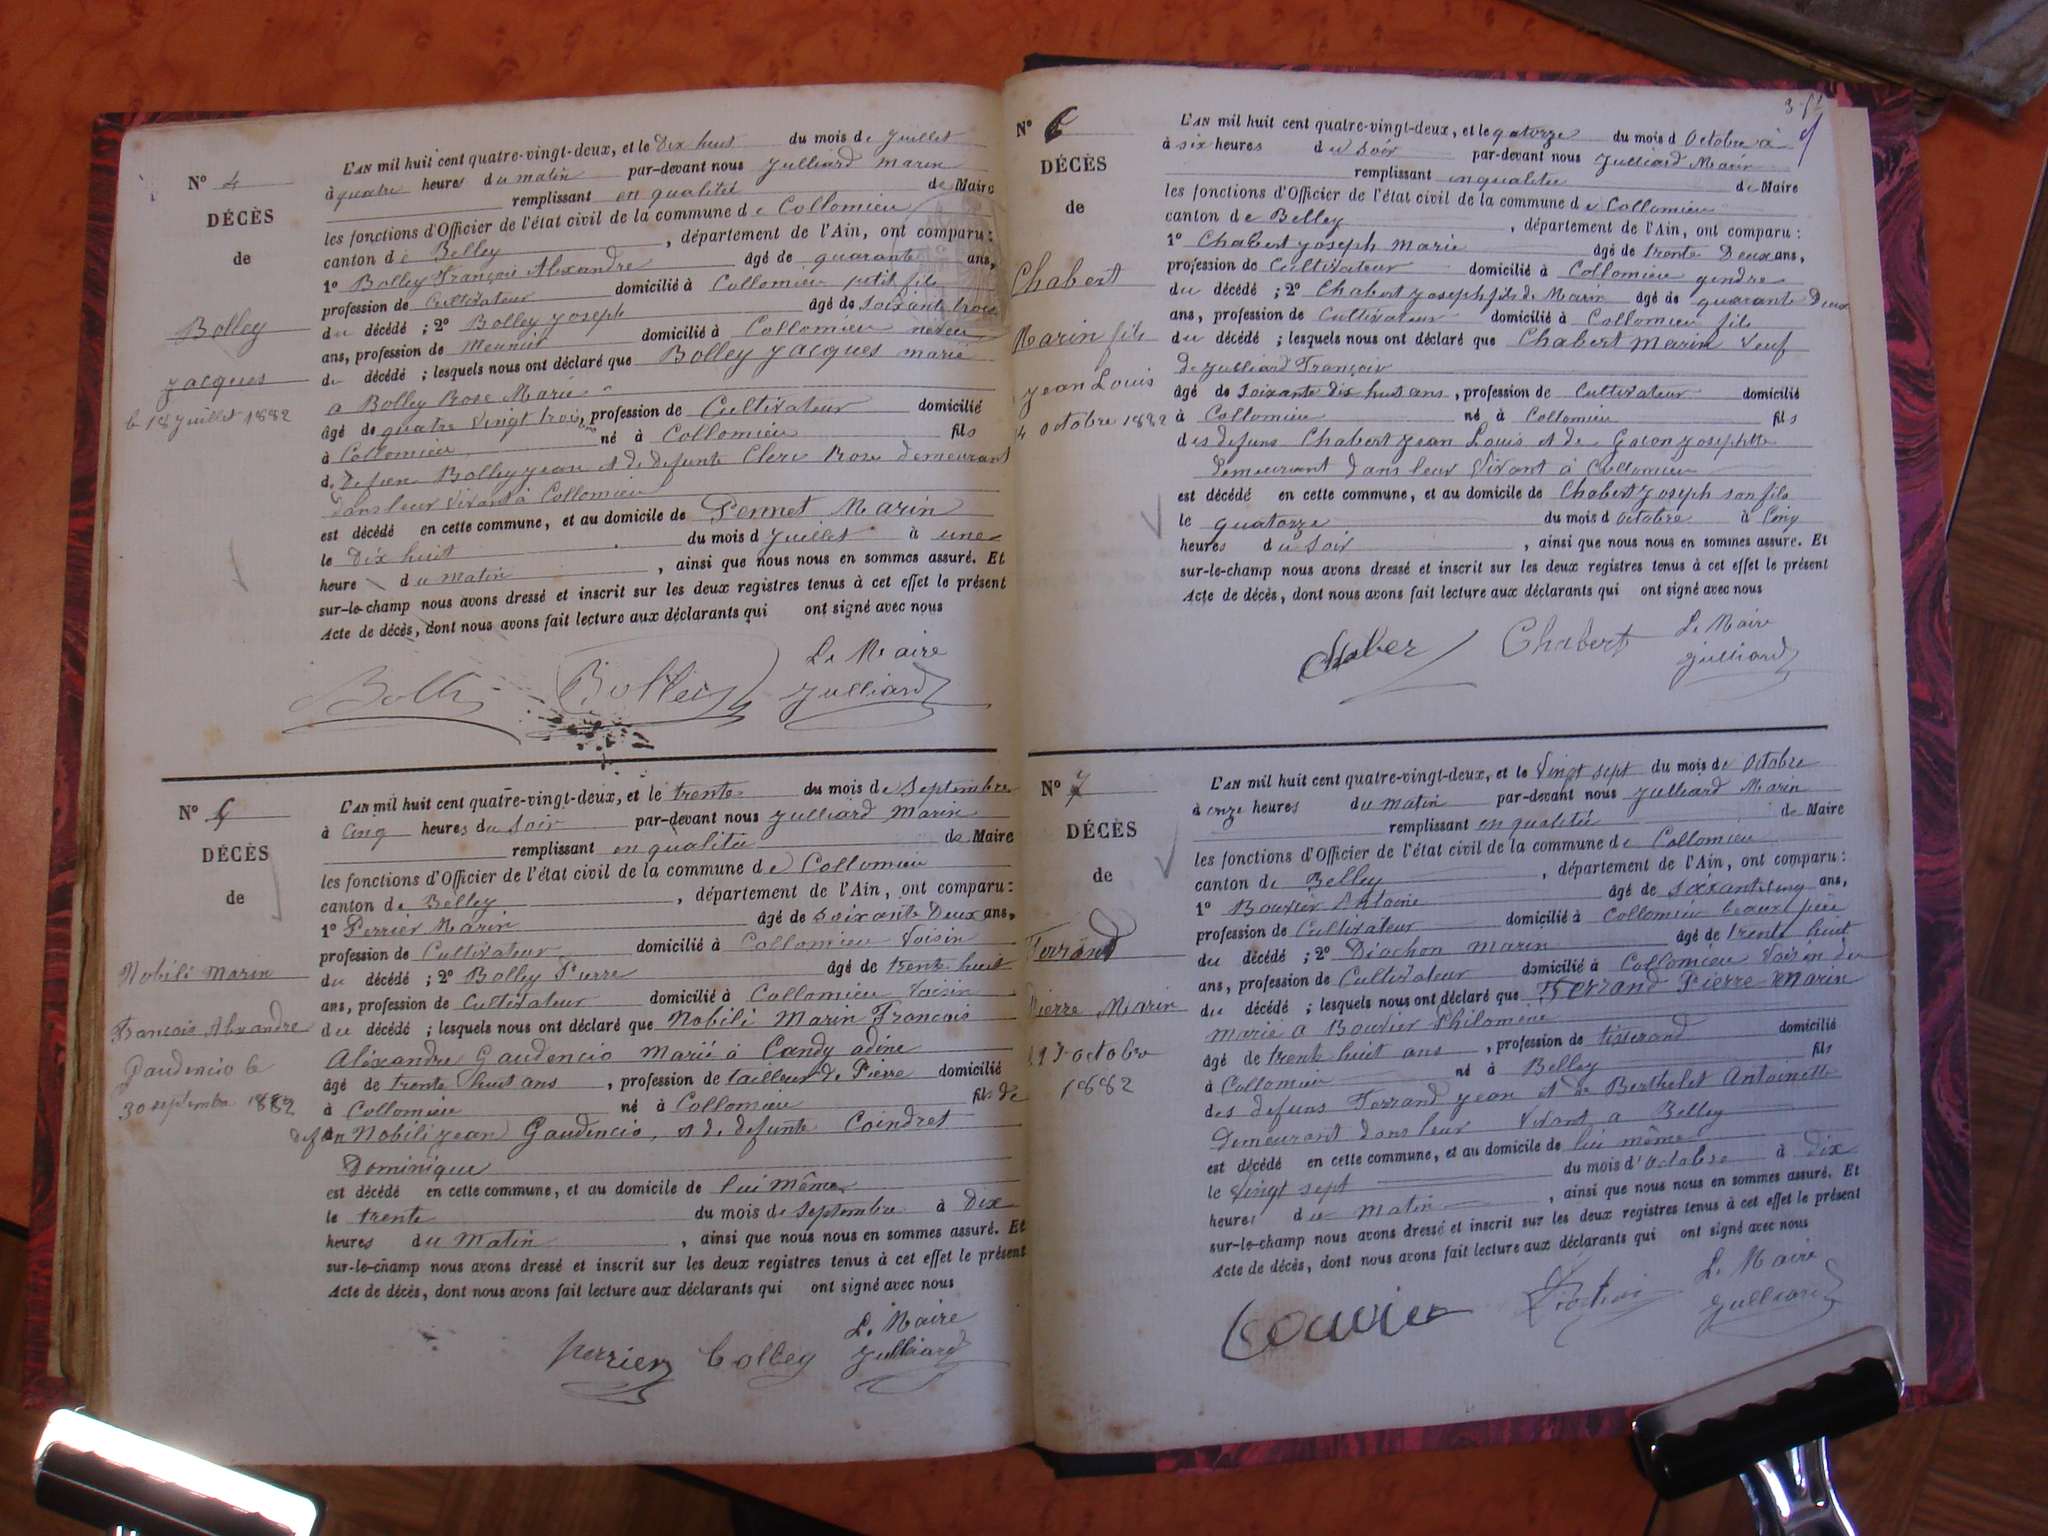 N° 4
DÉCÈS
de
Bolley
Jacques
le 18 Juillet 1882
L'AN mil huit cent quatre-vingt-deux, et le Dix huit du mois de Juillet
à quatre heures du matin par-devant nous Julliard Marin
remplissant en qualitée de Maire
les fonctions d'Officier de l'état civil de la commune de Collomieu
canton de Belley, département de l'Ain, ont comparu:
1° Bolley François Alexandre âgé de quarante ans,
profession de Cultivateur domicilié à Collomieu petit fils
du décédé ; 2° Bolley Joseph âgé de soixante trois
ans, profession de Meunier domicilié à Collomieu neveu
du décédé ; lesquels nous ont déclaré que Bolley Jacques marié
a Bolley Rose Marie
âgé de quatre vingt trois, profession de Cultivateur domicilié
à Collomieu né à Collomieu fils
de Bolley Jean et de defunte Clerc Rose demeurant
dans leur vivant à Collomieu
est décédé en cette commune, et au domicile de Pennet Marin
le Dix huit du mois d Juillet à une
heure du matin, ainsi que nous nous en sommes assuré. Et
sur-le-champ nous avons dressé et inscrit sur les deux registres tenus à cet effet le présent
Acte de décès, dont nous avons fait lecture aux déclarants qui ont signé avec nous
Le Maire
Bolley Julliard
N° 5
DÉCÈS
de
Nobili Marin
François Alexandre
Gaudencio le
30 septembre 1882
L'AN mil huit cent quatre-vingt-deux, et le trente du mois de Septembre
à Cinq heures du Soir par-devant nous Julliard Marin
remplissant en qualitée de Maire
les fonctions d'Officier de l'état civil de la commune de Collomieu
canton de Belley, département de l'Ain, ont comparu:
1° Perrier Marin âgé de soixante Deux ans,
profession de Cultivateur domicilié à Collomieu Voisin
du décédé ; 2° Bolley Pierre âgé de trente huit
ans, profession de Cultivateur domicilié à Collomieu Voisin
du décédé ; lesquels nous ont déclaré que Nobili Marin François
Alexandre Gaudencio Marié à Candy adine
âgé de trente huit ans, profession de tailleur de Pierre domicilié
à Collomieu né à Collomieu fils de
defun Nobili Jean Gaudencio, et de defunte Coindret
Dominique
est décédé en cette commune, et au domicile de lui même
le trente du mois de Septembre à Dix
heures du Matin, ainsi que nous nous en sommes assuré. Et
sur-le-champ nous avons dressé et inscrit sur les deux registres tenus à cet effet le présent
Acte de décès, dont nous avons fait lecture aux déclarants qui ont signé avec nous
Le Maire
perrier bolley Julliard
N° 6
DÉCÈS
de
Chabert
Marin fils
Jean Louis
octobre 1882
L'AN mil huit cent quatre-vingt-deux, et le quatorze du mois d Octobre à
à six heures du soir par-devant nous Julliard Marin
remplissant en qualitée de Maire
les fonctions d'Officier de l'état civil de la commune de Collomieu
canton de Belley, département de l'Ain, ont comparu:
1° Chabert Joseph Marie âgé de trente Deux ans,
profession de Cultivateur domicilié à Collomieu gendre
du décédé ; 2° Chabert Joseph fils de Marin âgé de quarante Deux
ans, profession de Cultivateur domicilié à Collomieu fils
du décédé ; lesquels nous ont déclaré que Chabert Marin Veuf
de Julliard
âgé de Soixante dix huit ans, profession de Cultivateur domicilié
à Collomieu né à Collomieu fils
des defuns Chabert Jean Louis et de Josephtte
demeurant dans leur vivant à Collomieu
est décédé en cette commune, et au domicile de Chabert Joseph son fils
le quatorze du mois d Octobre à Cinq
heures du Soir, ainsi que nous nous en sommes assuré. Et
sur-le-champ nous avons dressé et inscrit sur les deux registres tenus à cet effet le présent
Acte de décès, dont nous avons fait lecture aux déclarants qui ont signé avec nous
Le Maire
Chaber Chabert Julliard
N° 7
DÉCÈS
de
Ferrand
Pierre Marin
octobre
1882
L'AN mil huit cent quatre-vingt-deux, et le Vingt sept du mois de Octobre
à onze heures du matin par-devant nous Julliard Marin
remplissant en qualitée de Maire
les fonctions d'Officier de l'état civil de la commune de Collomieu
canton de Belley, département de l'Ain, ont comparu:
1° Bouvier Antoine âgé de soixante cinq ans,
profession de Cultivateur domicilié à Collomieu beaux père
du décédé ; 2° Diochon Marin âgé de trente huit
ans, profession de Cultivateur domicilié à Collomieu Voisin du
du décédé ; lesquels nous ont déclaré que Ferrand Pierre Marin
marié a Bouvier Philomène
âgé de trente huit ans, profession de tisserand domicilié
à Collomieu né à Belley fils
des defuns Ferrand Jean et de Berthelet Antoinette
Demeurant dans leur Vivant a Belley
est décédé en cette commune, et au domicile de lui même
le Vingt sept du mois d'Octobre à Dix
heures du Matin, ainsi que nous nous en sommes assuré. Et
sur-le-champ nous avons dressé et inscrit sur les deux registres tenus à cet effet le présent
Acte de décès, dont nous avons fait lecture aux déclarants qui ont signé avec nous
Le Maire
bouvier Julliard